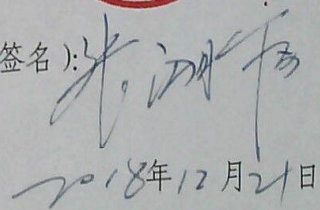 签名):
2018年12月21日